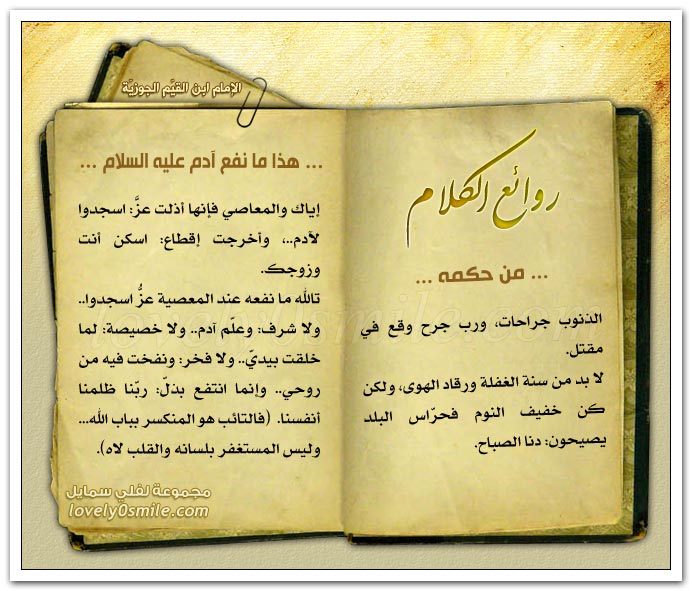 الإمام ابن القيَّم الجوزيَّة
روائع الكلام
... من حكمه ...
الذنوب جراحات، ورب جرح وقع في
مقتل.
لا بد من سنة الغفلة ورقاد الهوى، ولكن
كن خفيف النوم فحرّاس البلد
يصيحون: دنا الصباح.
... هذا ما نفع آدم عليه السلام ...
إياك والمعاصي فإنها أذلت عزَّ: اسجدوا
لآدم..، وأخرجت إقطاع: اسكن أنت
وزوجك.
تالله ما نفعه عند المعصية عزُّ اسجدوا..
ولا شرف: وعلّم آدم.. ولا خصيصة: لما
خلقت بيديّ.. ولا فخر: ونفخت فيه من
روحي.. وإنما انتفع بذلّ: ربّنا ظلمنا
أنفسنا. (فالتائب هو المنكسر بباب الله...
وليس المستغفر بلسانه والقلب لاه).
مجموعة لفلي سمايل
lovely0smile.com
lovely0smile.com